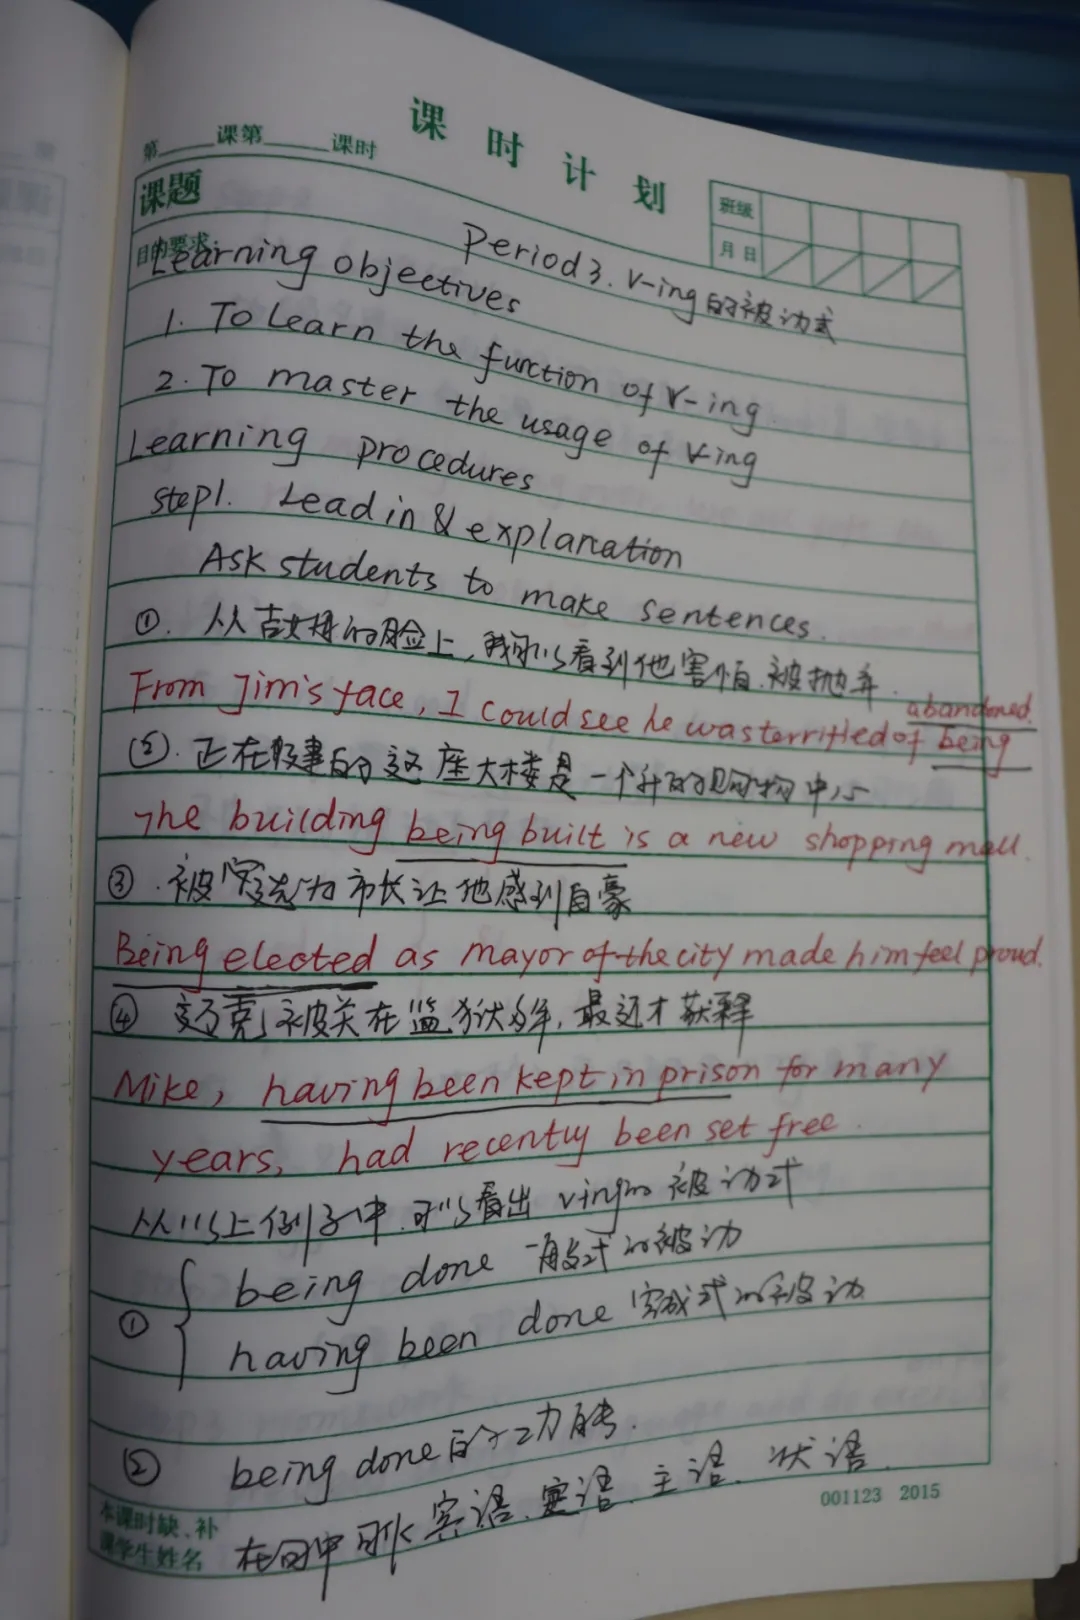 课时计划
第 课第 课时
班级
课题
月日
Period 3. V-ing的被动式
目的要求:
Learning objectives
1. To Learn the function of V-ing
2. To master the usage of V-ing
Learning procedures
step1. Lead in & explanation
Ask students to make sentences.
①. 从吉姆的脸上,我可以看到他害怕被抛弃.
From Jim's face, I could see he was terrified of being abandoned.
②. 正在修建的这座大楼是一个新的购物中心
The building being built is a new shopping mall.
③. 被选为市长让他感到自豪
Being elected as mayor of the city made him feel proud.
④ 迈克被关在监狱多年,最近才获释
Mike, having been kept in prison for many
years, had recently been set free.
从以上例子中.可以看出ving的被动式
being done 一般式的被动
①
having been done 完成式的被动
② being done的功能.
在句中可作宾语、定语、主语、状语.
本课时缺、补
课学生姓名
001123 2015